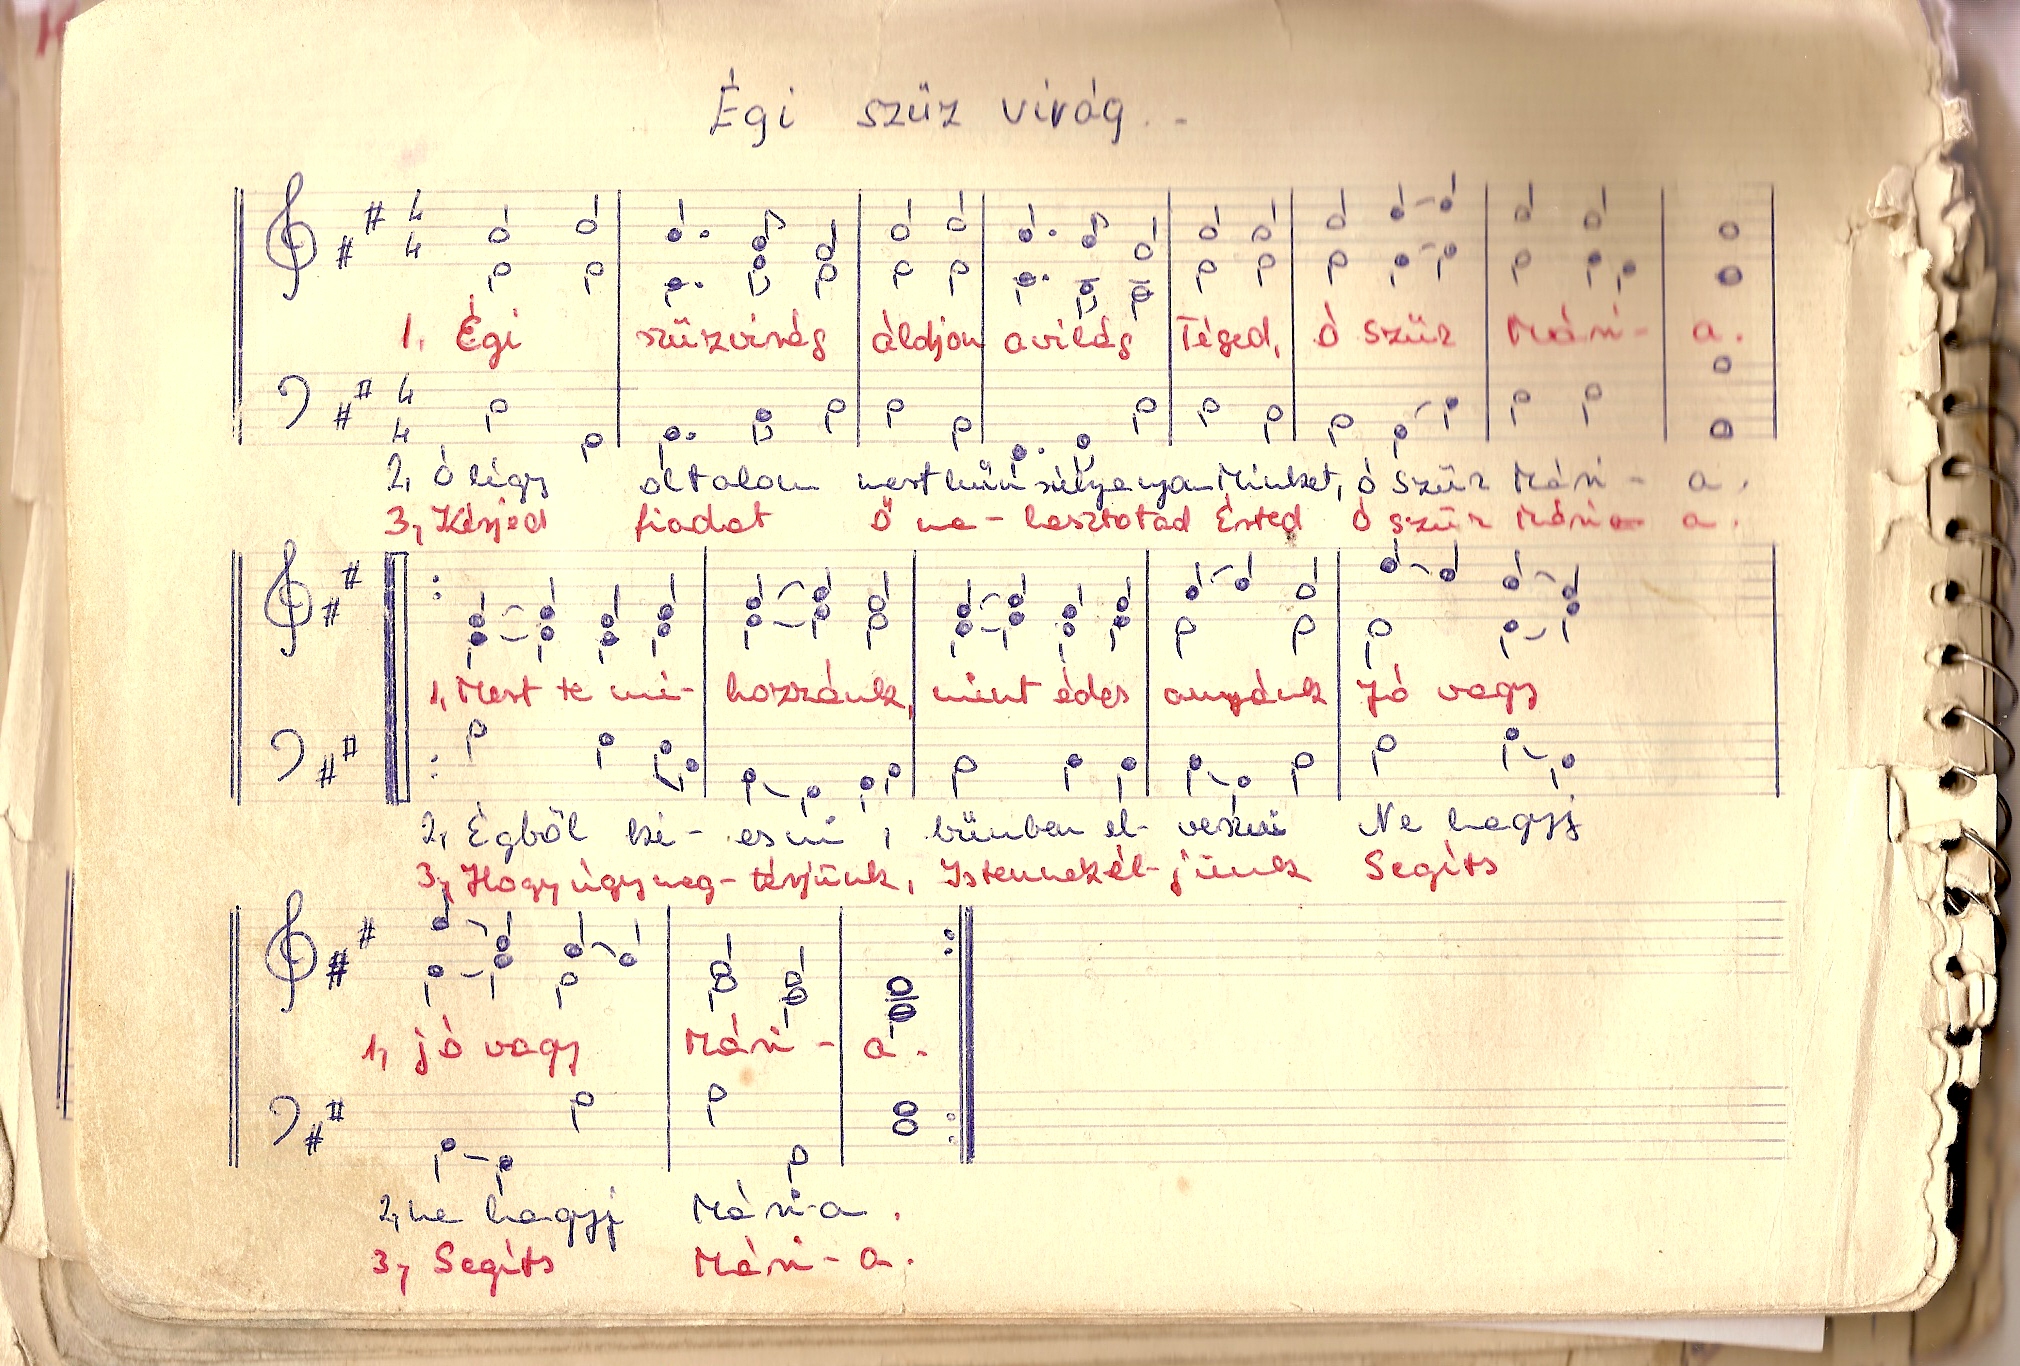 Égi szűz virág..
1, Égi szűzvirág áldjon avilág Téged, ó szűz Mári- a.
2, Ó légy oltalom mert Minket, ó szűz Mári - a.
3, Kérjed fiadat Ő ma - lasztotad Érted ó szűz Mária a.
1, Mert te mi- hozzánk, mint édes anyánk Jó vagy
2, Égből ki- esni, bűnben el- veszni Ne hagyj
3, Hogy úgy meg- térjünk, Istennek él- jünk Segíts
1, jó vagy Mári - a.
2, ne hagyj Mári-a.
3, Segíts Mári - a.